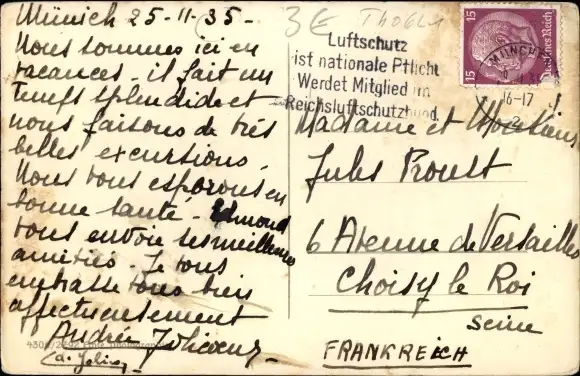 Münich 25-11-35-
Nous sommes ici en
vacances - il fait un
temps splendide et
nous faisons de très
belles excursions.
Nous vous esperons en
bonne santé - Edmond
vous envoie ses meilleures
amitiés. Je vous
embrasse tous bien
affectueusement
Andrée
3€
Luftschutz
ist nationale Pflicht
Werdet Mitglied im
Reichsluftschutzbund
15
15
Deutsches Reich
MÜNCHEN
16-17
Madame et Monsieur
Jules Proust
6 Avenue de Versailles
Choisy le Roi
Seine
FRANKREICH